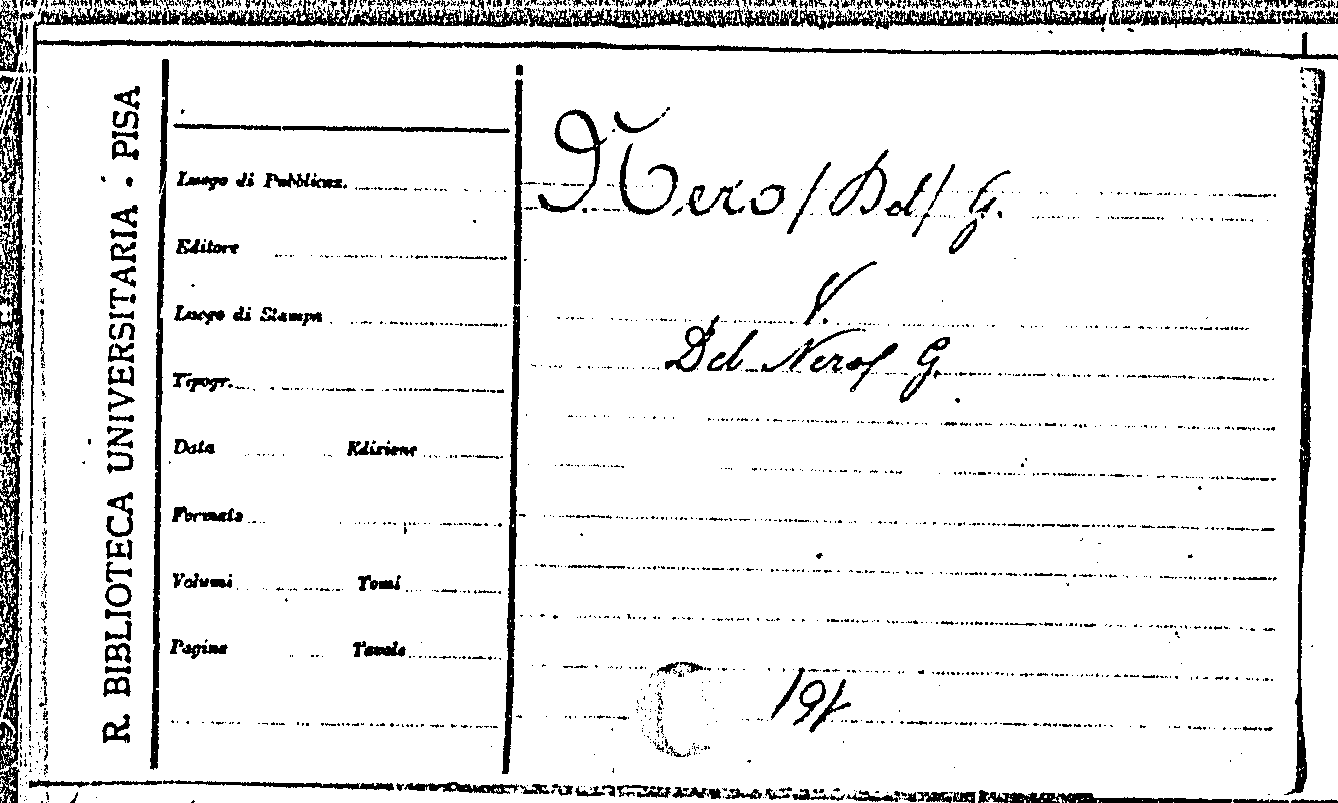 R. BIBLIOTECA UNIVERSITARIA - PISA
Luogo di Pubblicaz.
Editore
Luogo di Stampa
Tipogr.
Data Edizione
Formato
Volumi Tomi
Pagine Tavole
Nero / Del / G.
V.
Del Nero / G.